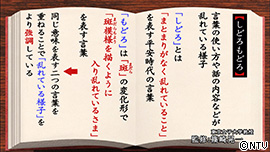 【しどろもどろ】
言葉の使い方や話の内容などが
乱れている様子
「しどろ」とは
「まとまりがなく乱れていること」
を表す平安時代の言葉
「もどろ」は「斑」の変化形で
「斑模様を描くように
入り乱れているさま」
を表す言葉
同じ意味を表す二つの言葉を
重ねることで「乱れている様子」を
より強調している
©NTV